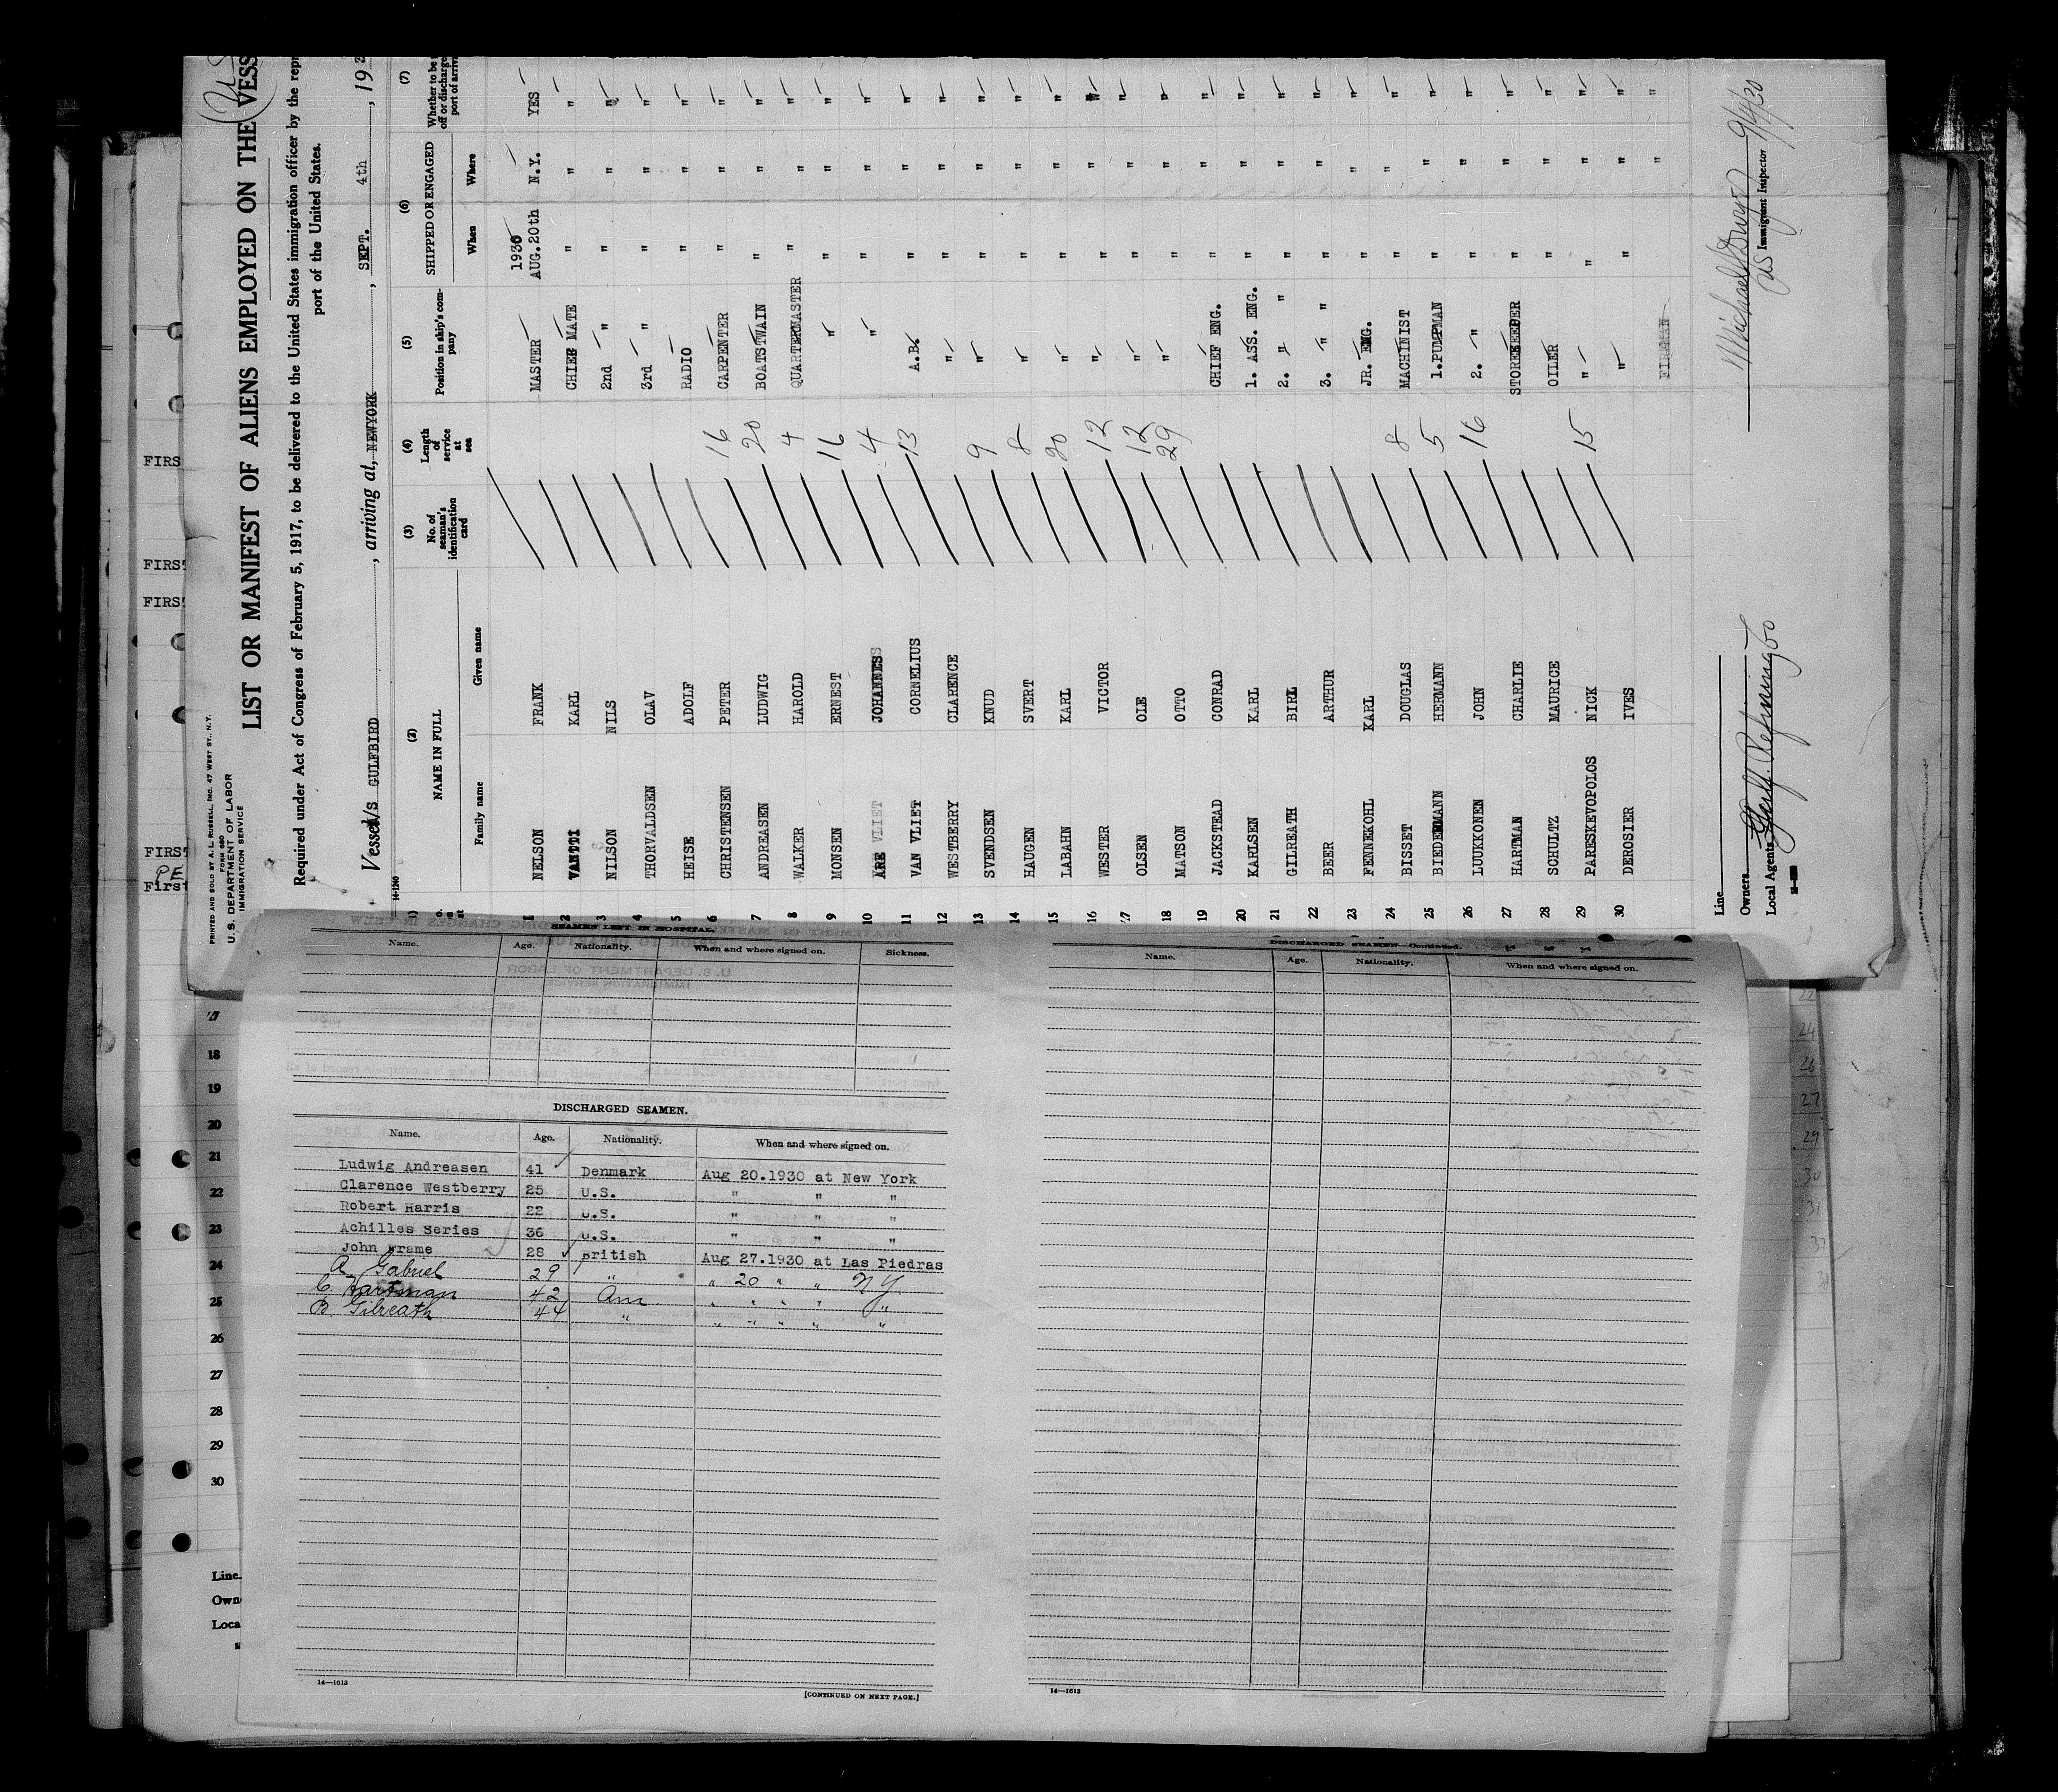 PRINTED AND SOLD BY A. L. RUSSELL, INC. 47 WEST ST., N.Y.
FORM 680
U. S. DEPARTMENT OF LABOR
IMMIGRATION SERVICE
LIST OR MANIFEST OF ALIENS EMPLOYED ON THE VESS
Required under Act of Congress of February 5, 1917, to be delivered to the United States immigration officer by the repr
port of the United States.
Vessel M/S GULFBIRD, arriving at, NEWYORK, SEPT. 4th, 193
14-1240
(2) (3) (4) (5) (6) (7)
NAME IN FULL No. of seaman's identification card Length of service at sea Position in ship's company SHIPPED OR ENGAGED Whether to be off or discharge port of arriv
Family name Given name When Where
1930
1 NELSON FRANK MASTER AUG.20th N.Y. YES
2 VANTTI KARL CHIEF MATE " " "
3 NILSON NILS 2nd " " " "
4 THORVALDSEN OLAV 3rd " " " "
5 HEISE ADOLF RADIO " " "
6 CHRISTENSEN PETER 16 CARPENTER " " "
7 ANDREASEN LUDWIG 20 BOATSTWAIN " " "
8 WALKER HAROLD 4 QUARTERMASTER " " "
9 MONSEN ERNEST 16 " " " "
10 ARE VLIET JOHANNES 4 " " " "
11 VAN VLIET CORNELIUS 13 A.B. " " "
12 WESTBERRY CLARENCE " " " "
13 SVENDSEN KNUD 9 " " " "
14 HAUGEN SVERT 8 " " " "
15 LABAHN KARL 20 " " " "
16 WESTER VICTOR 12 " " " "
17 OLSEN OLE 12 " " " "
18 MATSON OTTO 29 " " " "
19 JACKSTEAD CONRAD CHIEF ENG. " " "
20 KARLSEN KARL 1. ASS. ENG. " " "
21 GILREATH BIRL 2. " " " " "
22 BEER ARTHUR 3. " " " " "
23 FENNEKOHL KARL JR. ENG. " " "
24 BISSET DOUGLAS 8 MACHINIST " " "
25 BIEDERMANN HERMANN 5 1.PUMPMAN " " "
26 LUUKKONEN JOHN 16 2. " " " "
27 HARTMAN CHARLIE STOREKEEPER " " "
28 SCHULTZ MAURICE OILER " " "
29 PARESKEVOPOLOS NICK 15 " " " "
30 DEROSIER IVES " " " "
FIREMAN " "
Line
Owners Gulf Refining Co
Local Agents
US Immigrant Inspector
9/4/30
FIRS
FIRST
FIRST
FIRST
First
SEAMEN LEFT IN HOSPITAL.
Name. Age. Nationality. When and where signed on. Sickness.
DISCHARGED SEAMEN.
Name. Age. Nationality. When and where signed on.
Ludwig Andreasen 41 Denmark Aug 20.1930 at New York
Clarence Westberry 25 U.S. " " "
Robert Harris 22 U.S. " " "
Achilles Series 36 U.S. " " "
John Frame 28 British Aug 27.1930 at Las Piedras
A. Gabriel 29 " " 20 " " N Y
C. Hartman 42 Am " " " " "
B. Gilreath 44 " " " " " "
14—1613
[CONTINUED ON NEXT PAGE.]
DISCHARGED SEAMEN—Continued.
Name. Age. Nationality. When and where signed on.
14—1613
17
18
19
20
21
22
23
24
25
26
27
28
29
30
Line
Own
Loca
22
24
26
27
29
30
31